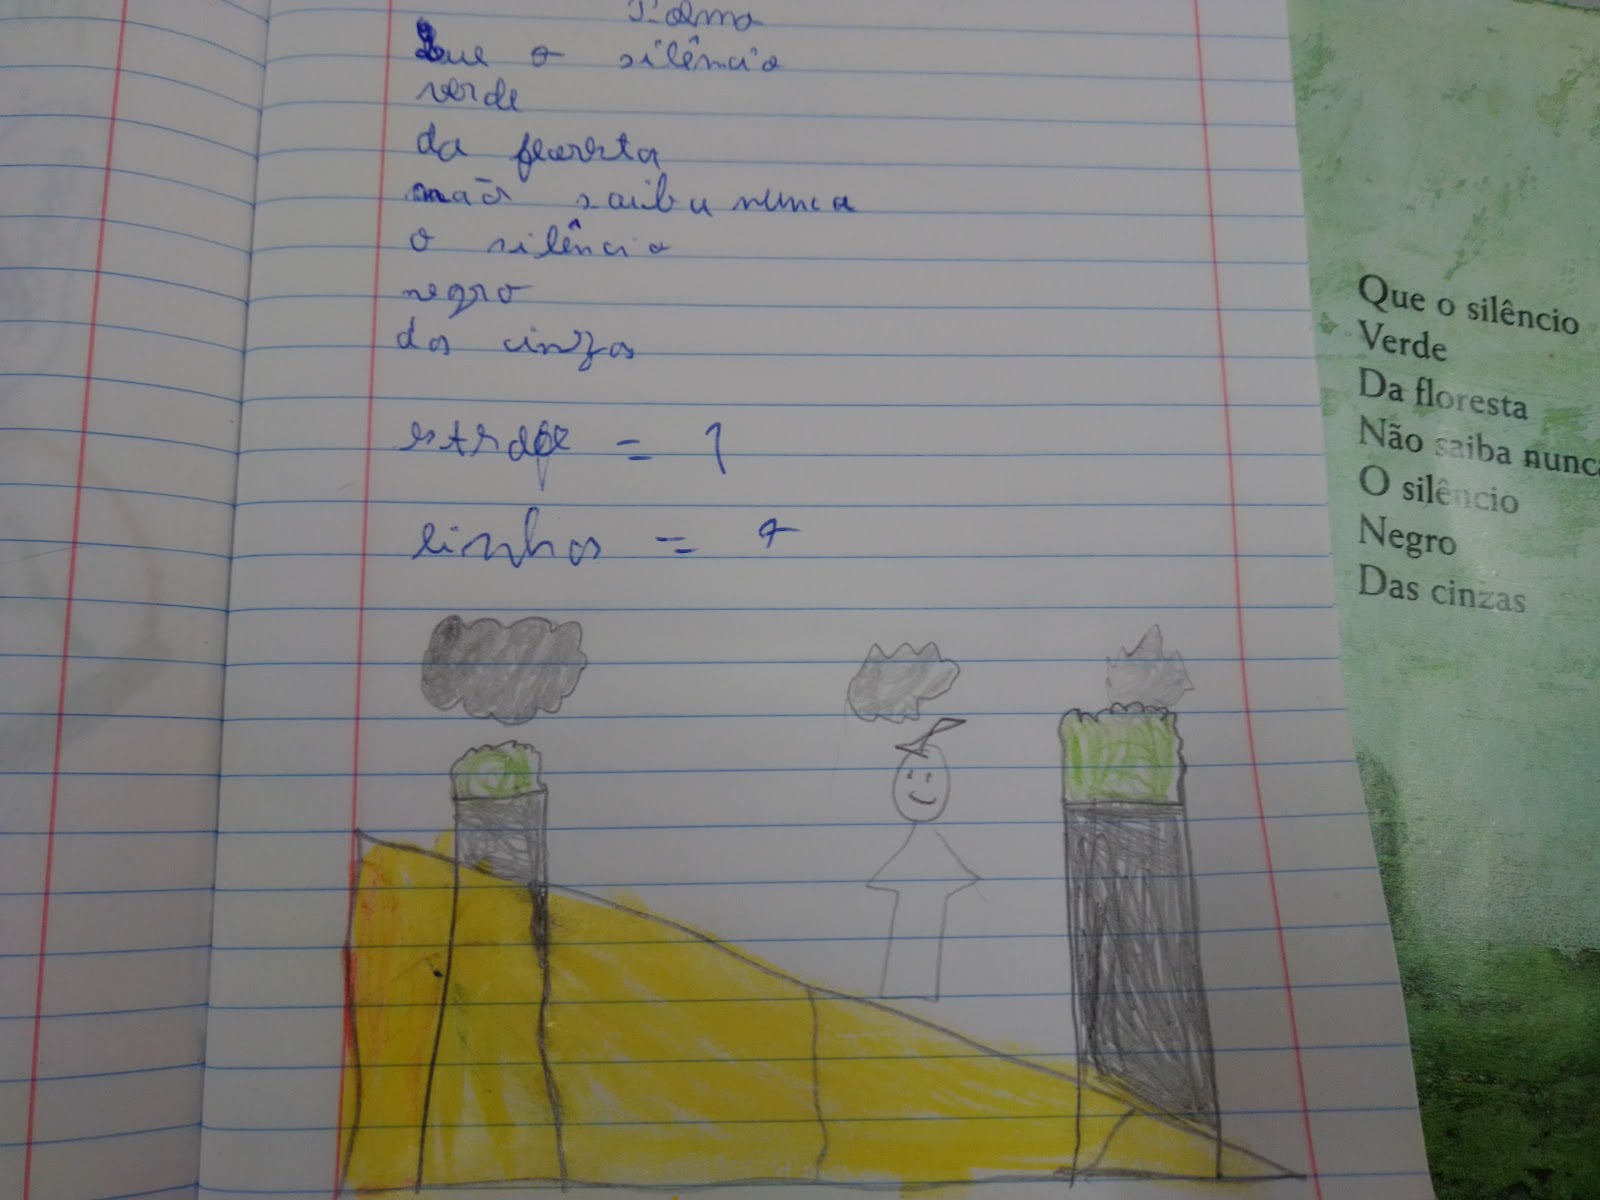 Poema
Que o silêncio
verde
da floresta
não saiba nunca
o silêncio
negro
das cinzas
estrofe = 1
linhas = 7
Que o silêncio
Verde
Da floresta
Não saiba nunc
O silêncio
Negro
Das cinzas